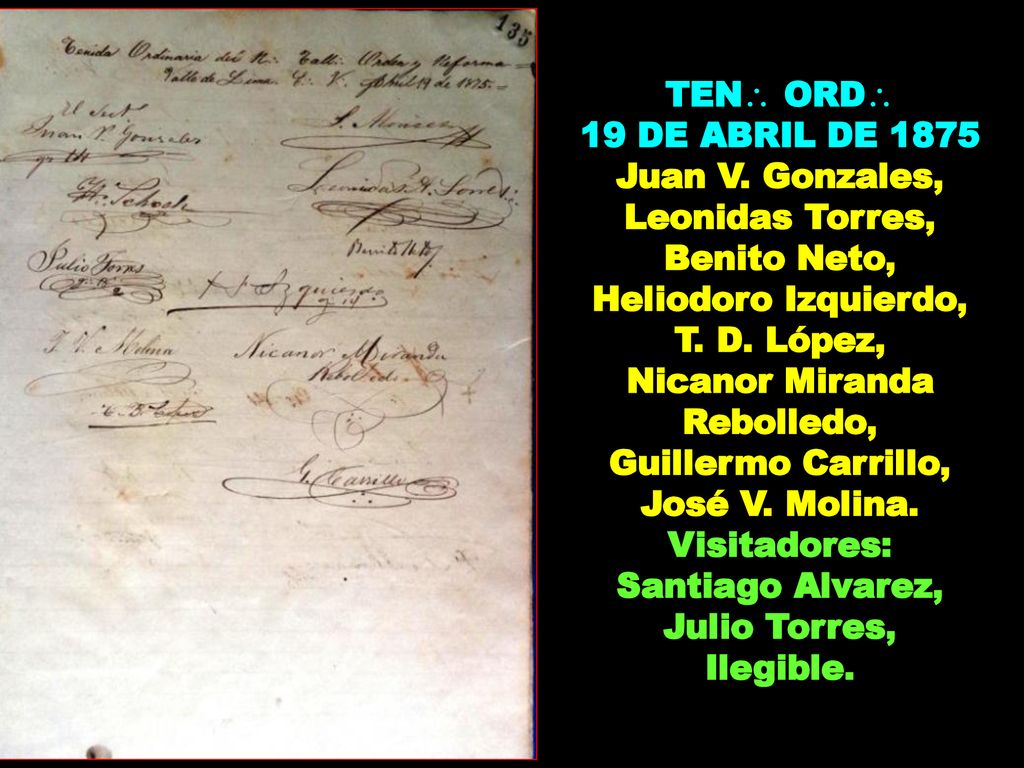 135
Tenida Ordinaria del R∴ Tall∴ Orden y Reforma
Valle de Lima. E∴ V∴ Abril 19 de 1875.=
Juan V. Gonzales
gr 14
Leonidas Torres
Julio Torres
Izquierdo
J. V. Molina
Nicanor Miranda
Rebolledo
T. D. López
G. Carrillo
TEN∴ ORD∴
19 DE ABRIL DE 1875
Juan V. Gonzales,
Leonidas Torres,
Benito Neto,
Heliodoro Izquierdo,
T. D. López,
Nicanor Miranda
Rebolledo,
Guillermo Carrillo,
José V. Molina.
Visitadores:
Santiago Alvarez,
Julio Torres,
Ilegible.